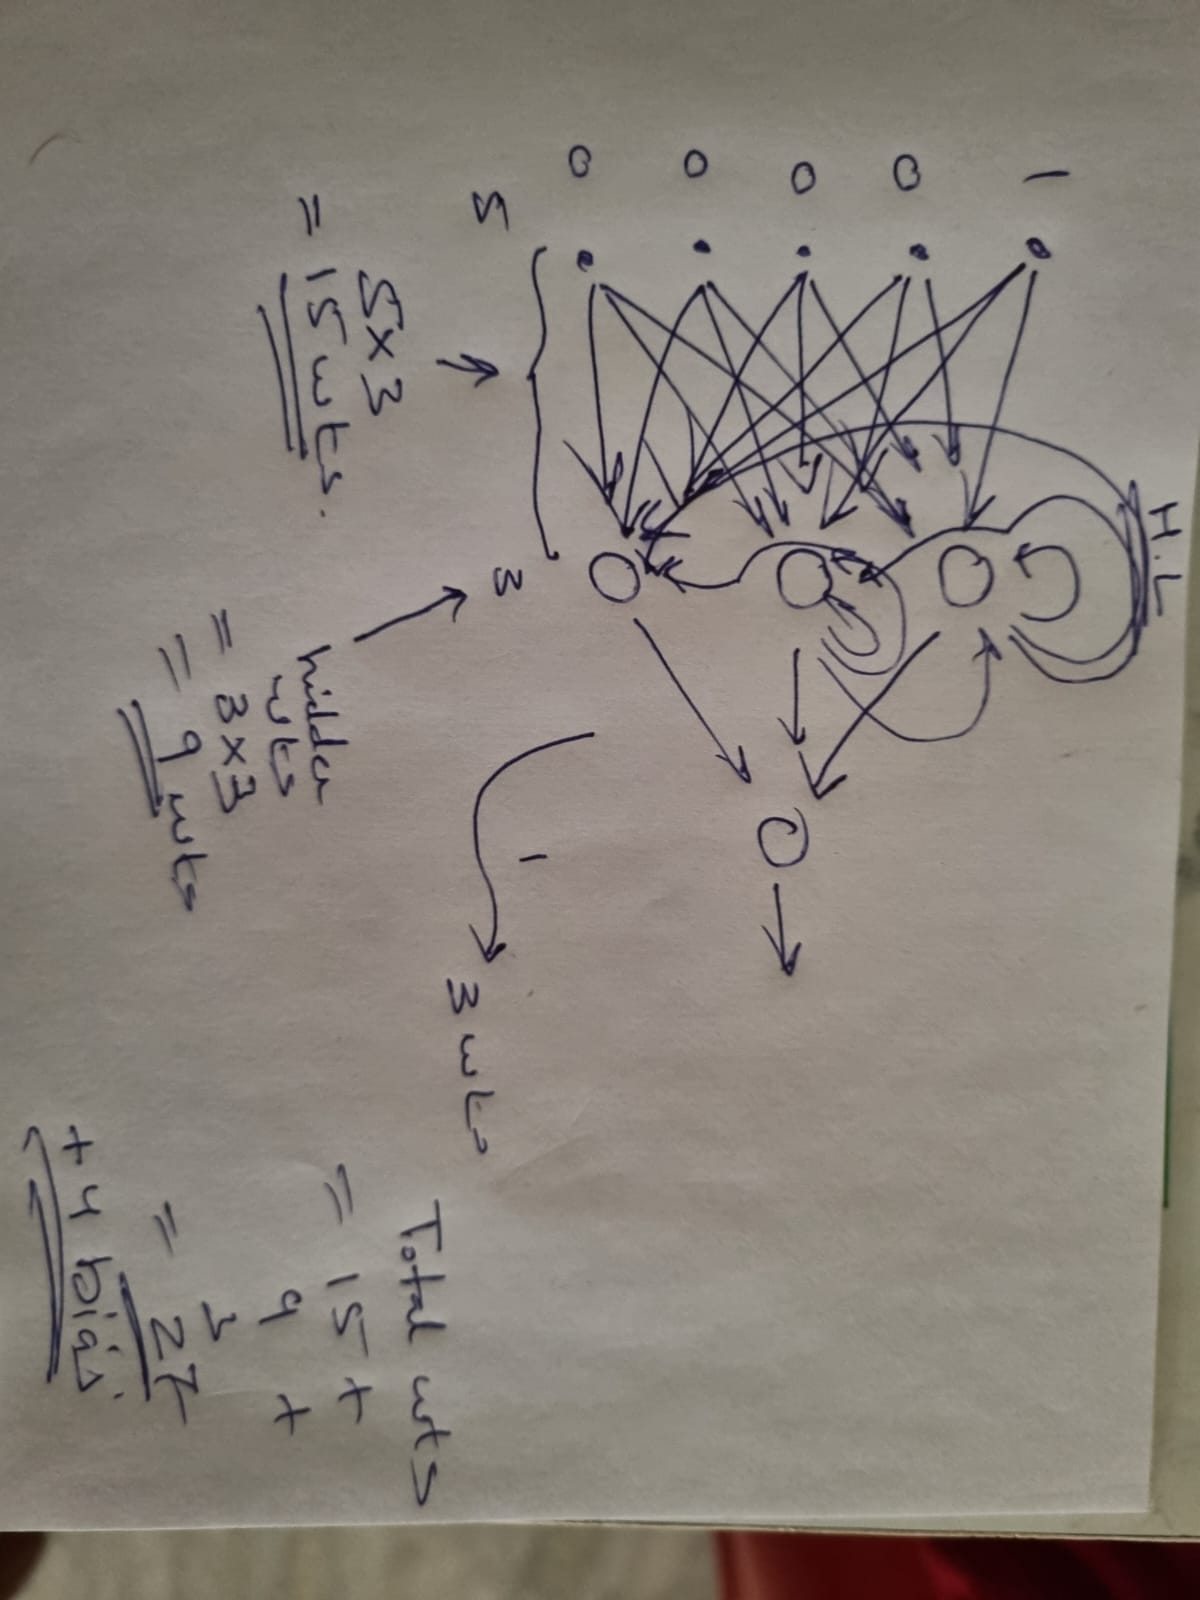 1
0
0
0
0
H.L
5
3
1
5x3
= 15 wts.
hidden
wts
= 3x3
= 9 wts
3 wts
Total wts
= 15 +
9 +
3
= 27
+ 4 bias